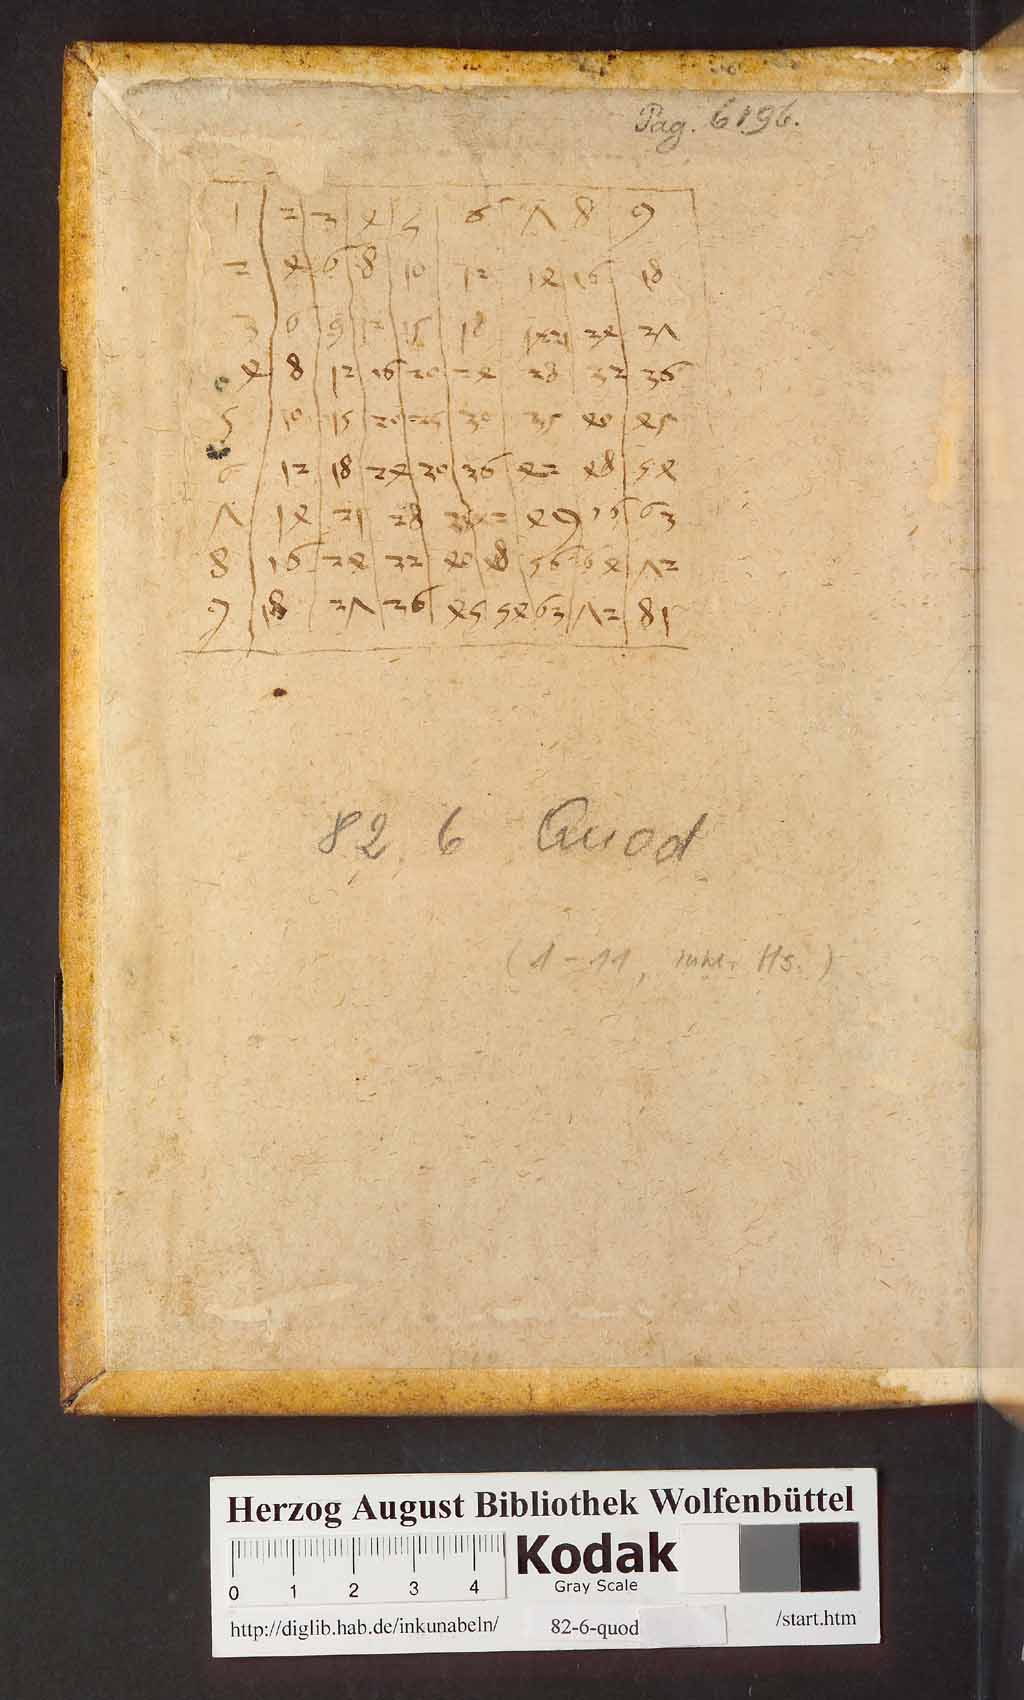 Pag. 6196.
1 2 3 4 5 6 7 8 9
2 4 6 8 10 12 14 16 18
3 6 9 12 15 18 21 24 27
4 8 12 16 20 24 28 32 36
5 10 15 20 25 30 35 40 45
6 12 18 24 30 36 42 48 54
7 14 21 28 42 49 56 63
8 16 24 32 40 48 56 64 72
9 18 27 36 45 54 63 72 81
82, 6 Quod
(1-11, Hs.)
Herzog August Bibliothek Wolfenbüttel
0 1 2 3 4
Kodak
Gray Scale
http://diglib.hab.de/inkunabeln/ 82-6-quod /start.htm